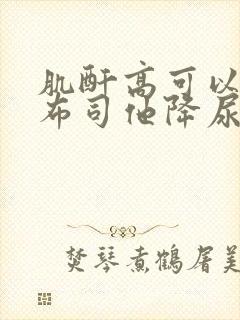 肌酐高可以
布司他降尿
焚琴煮鹤屠美